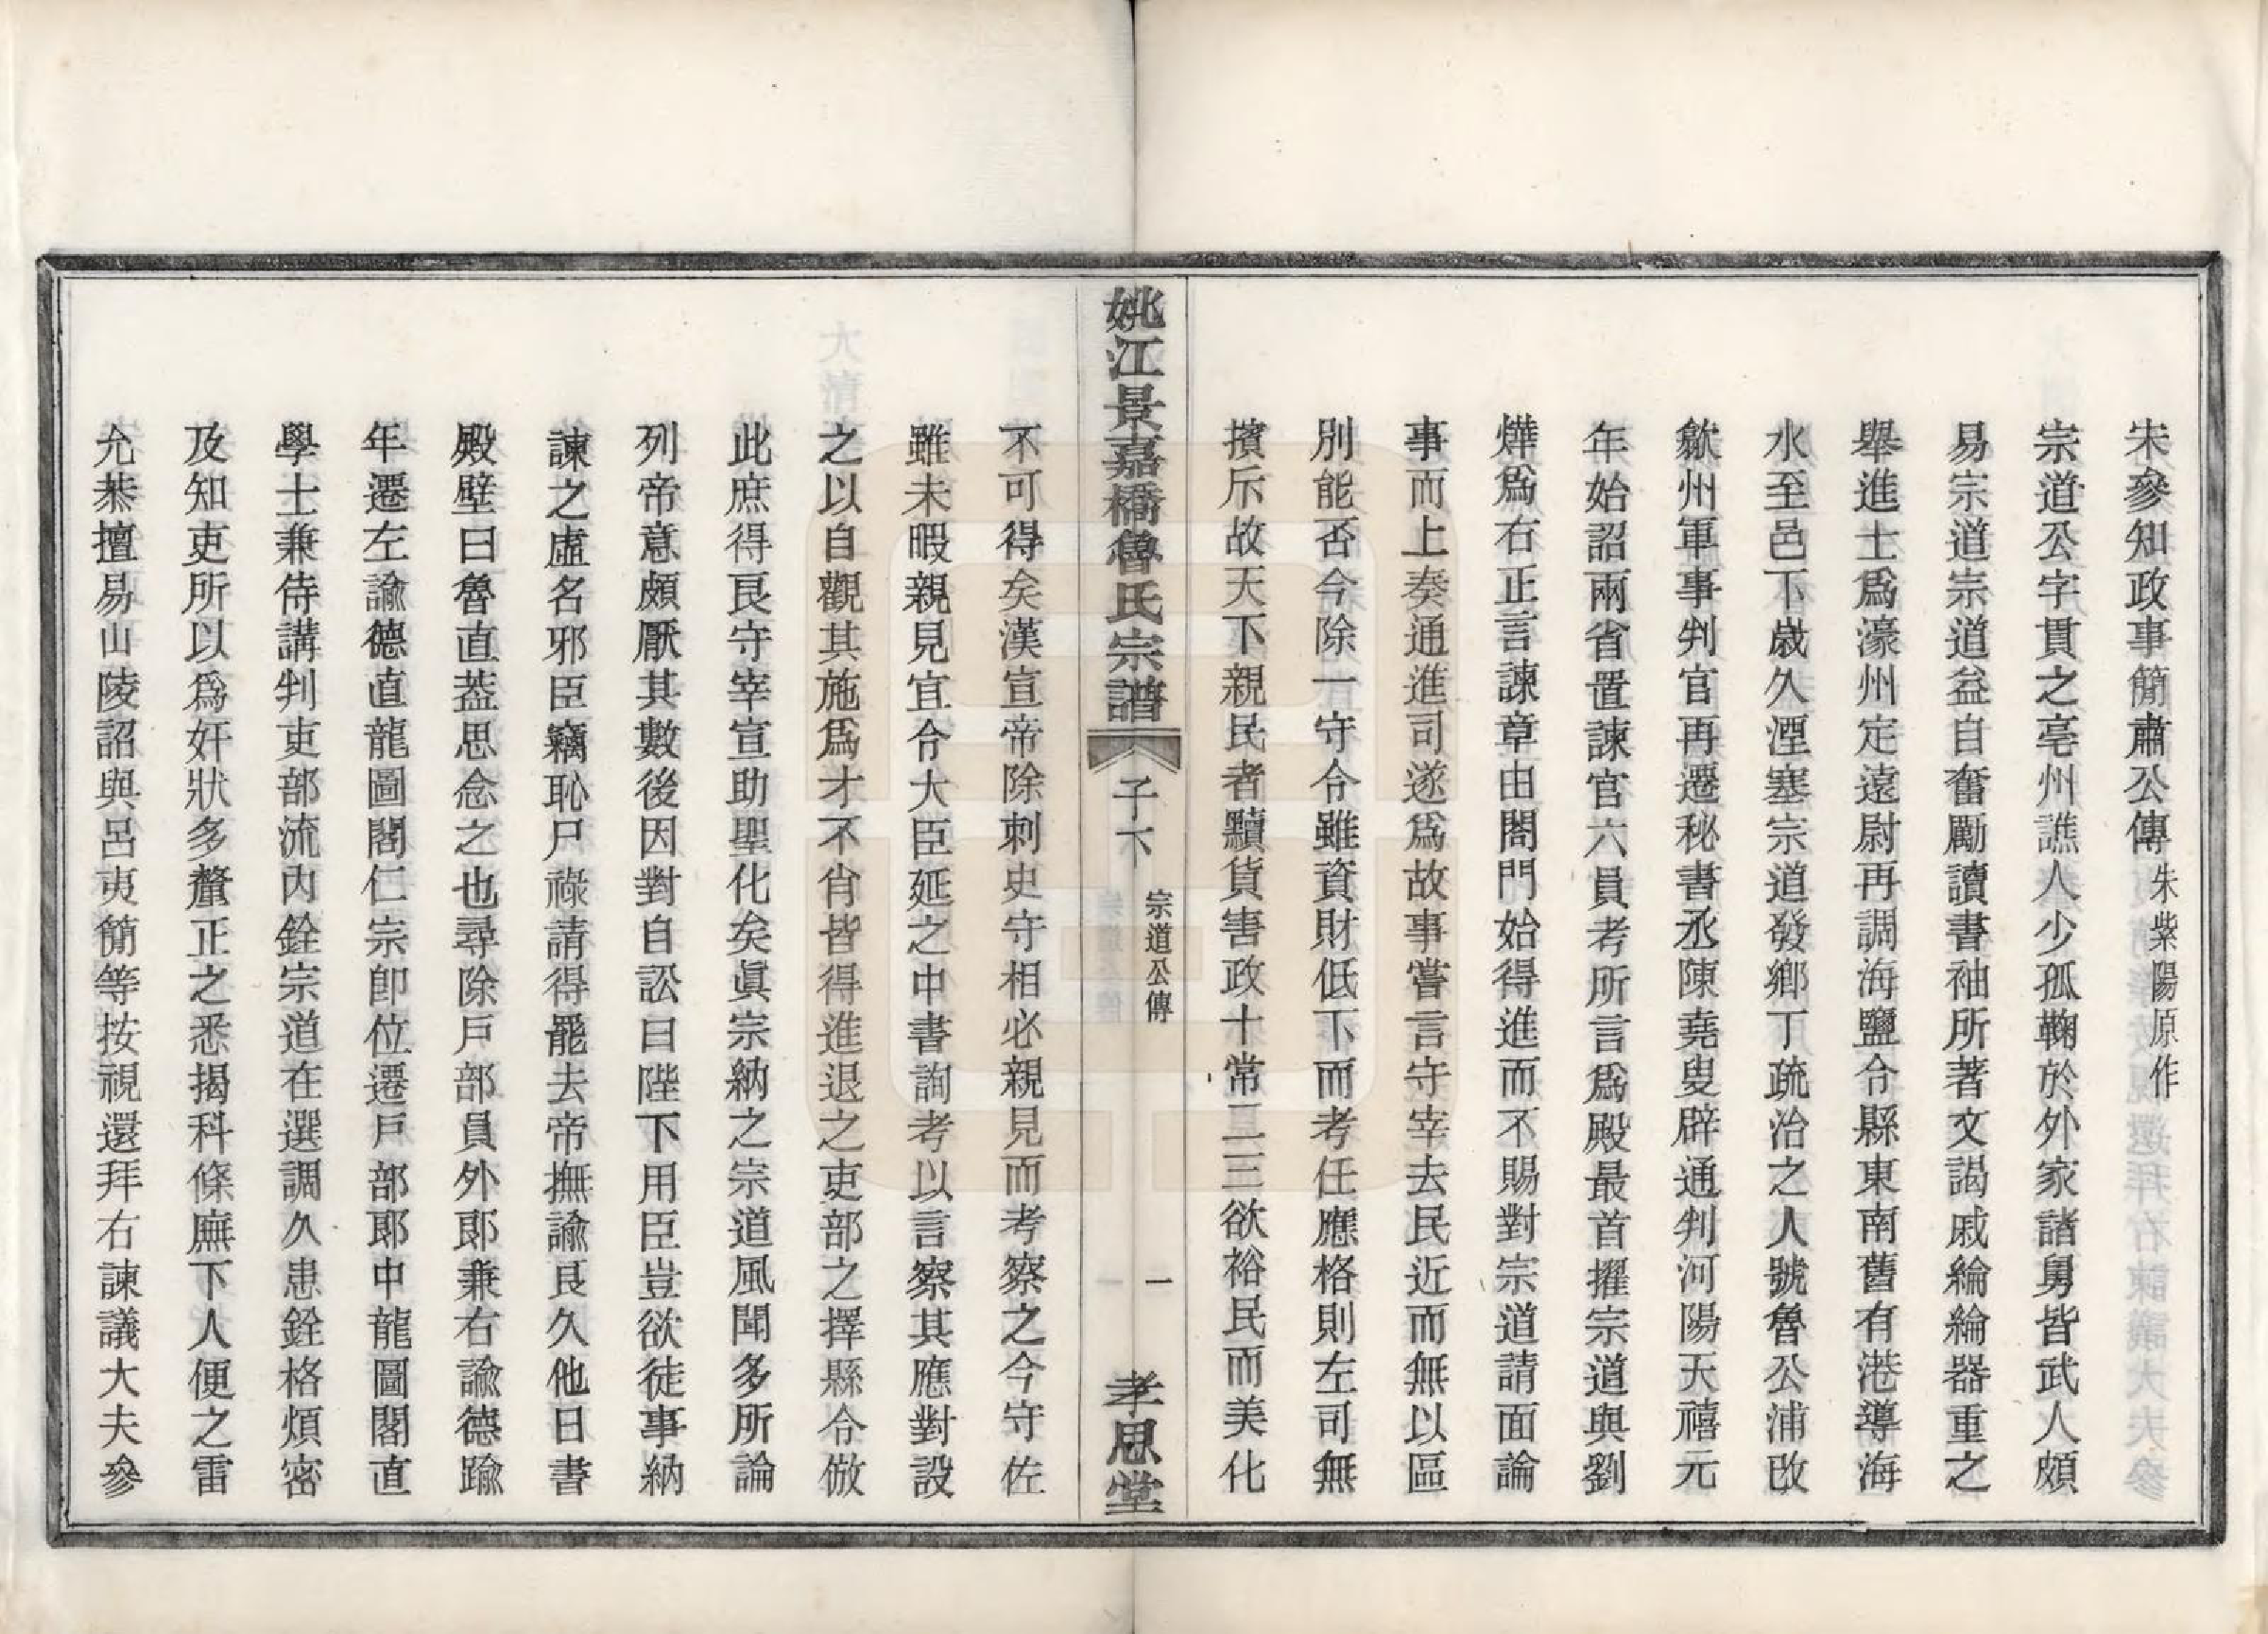 宋參知政事簡肅公傳 朱紫陽原作
宗道公字貫之亳州譙人少孤鞠於外家諸舅皆武人頗
易宗道宗道益自奮勵讀書袖所著文謁戚綸綸器重之
舉進士爲濠州定遠尉再調海鹽令縣東南舊有港導海
水至邑下歲久湮塞宗道發鄉丁疏治之人號魯公浦改
歙州軍事判官再遷秘書丞陳堯叟辟通判河陽天禧元
年始詔兩省置諫官六員考所言爲殿最首擢宗道與劉
燁爲右正言諫章由閤門始得進而不賜對宗道請面論
事而上奏通進司遂爲故事嘗言守宰去民近而無以區
別能否今除一守令雖資財低下而考任應格則左司無
擯斥故天下親民者黷貨害政十常二三欲裕民而美化
姚江景嘉橋魯氏宗譜 子下 宗道公傳 一 孝思堂
不可得矣漢宣帝除刺史守相必親見而考察之今守佐
雖未暇親見宜令大臣延之中書詢考以言察其應對設
之以自觀其施爲才不肖皆得進退之吏部之擇縣令倣
此庶得良守宰宣助聖化矣眞宗納之宗道風聞多所論
列帝意頗厭其數後因對自訟曰陛下用臣豈欲徒事納
諫之虛名邪臣竊恥尸祿請得罷去帝撫諭良久他日書
殿壁曰魯直蓋思念之也尋除戶部員外郎兼右諭德踰
年遷左諭德直龍圖閣仁宗卽位遷戶部郎中龍圖閣直
學士兼侍講判吏部流內銓宗道在選調久患銓格煩密
及知吏所以爲奸狀多釐正之悉揭科條廡下人便之雷
允恭擅易山陵詔與呂夷簡等按視還拜右諫議大夫參